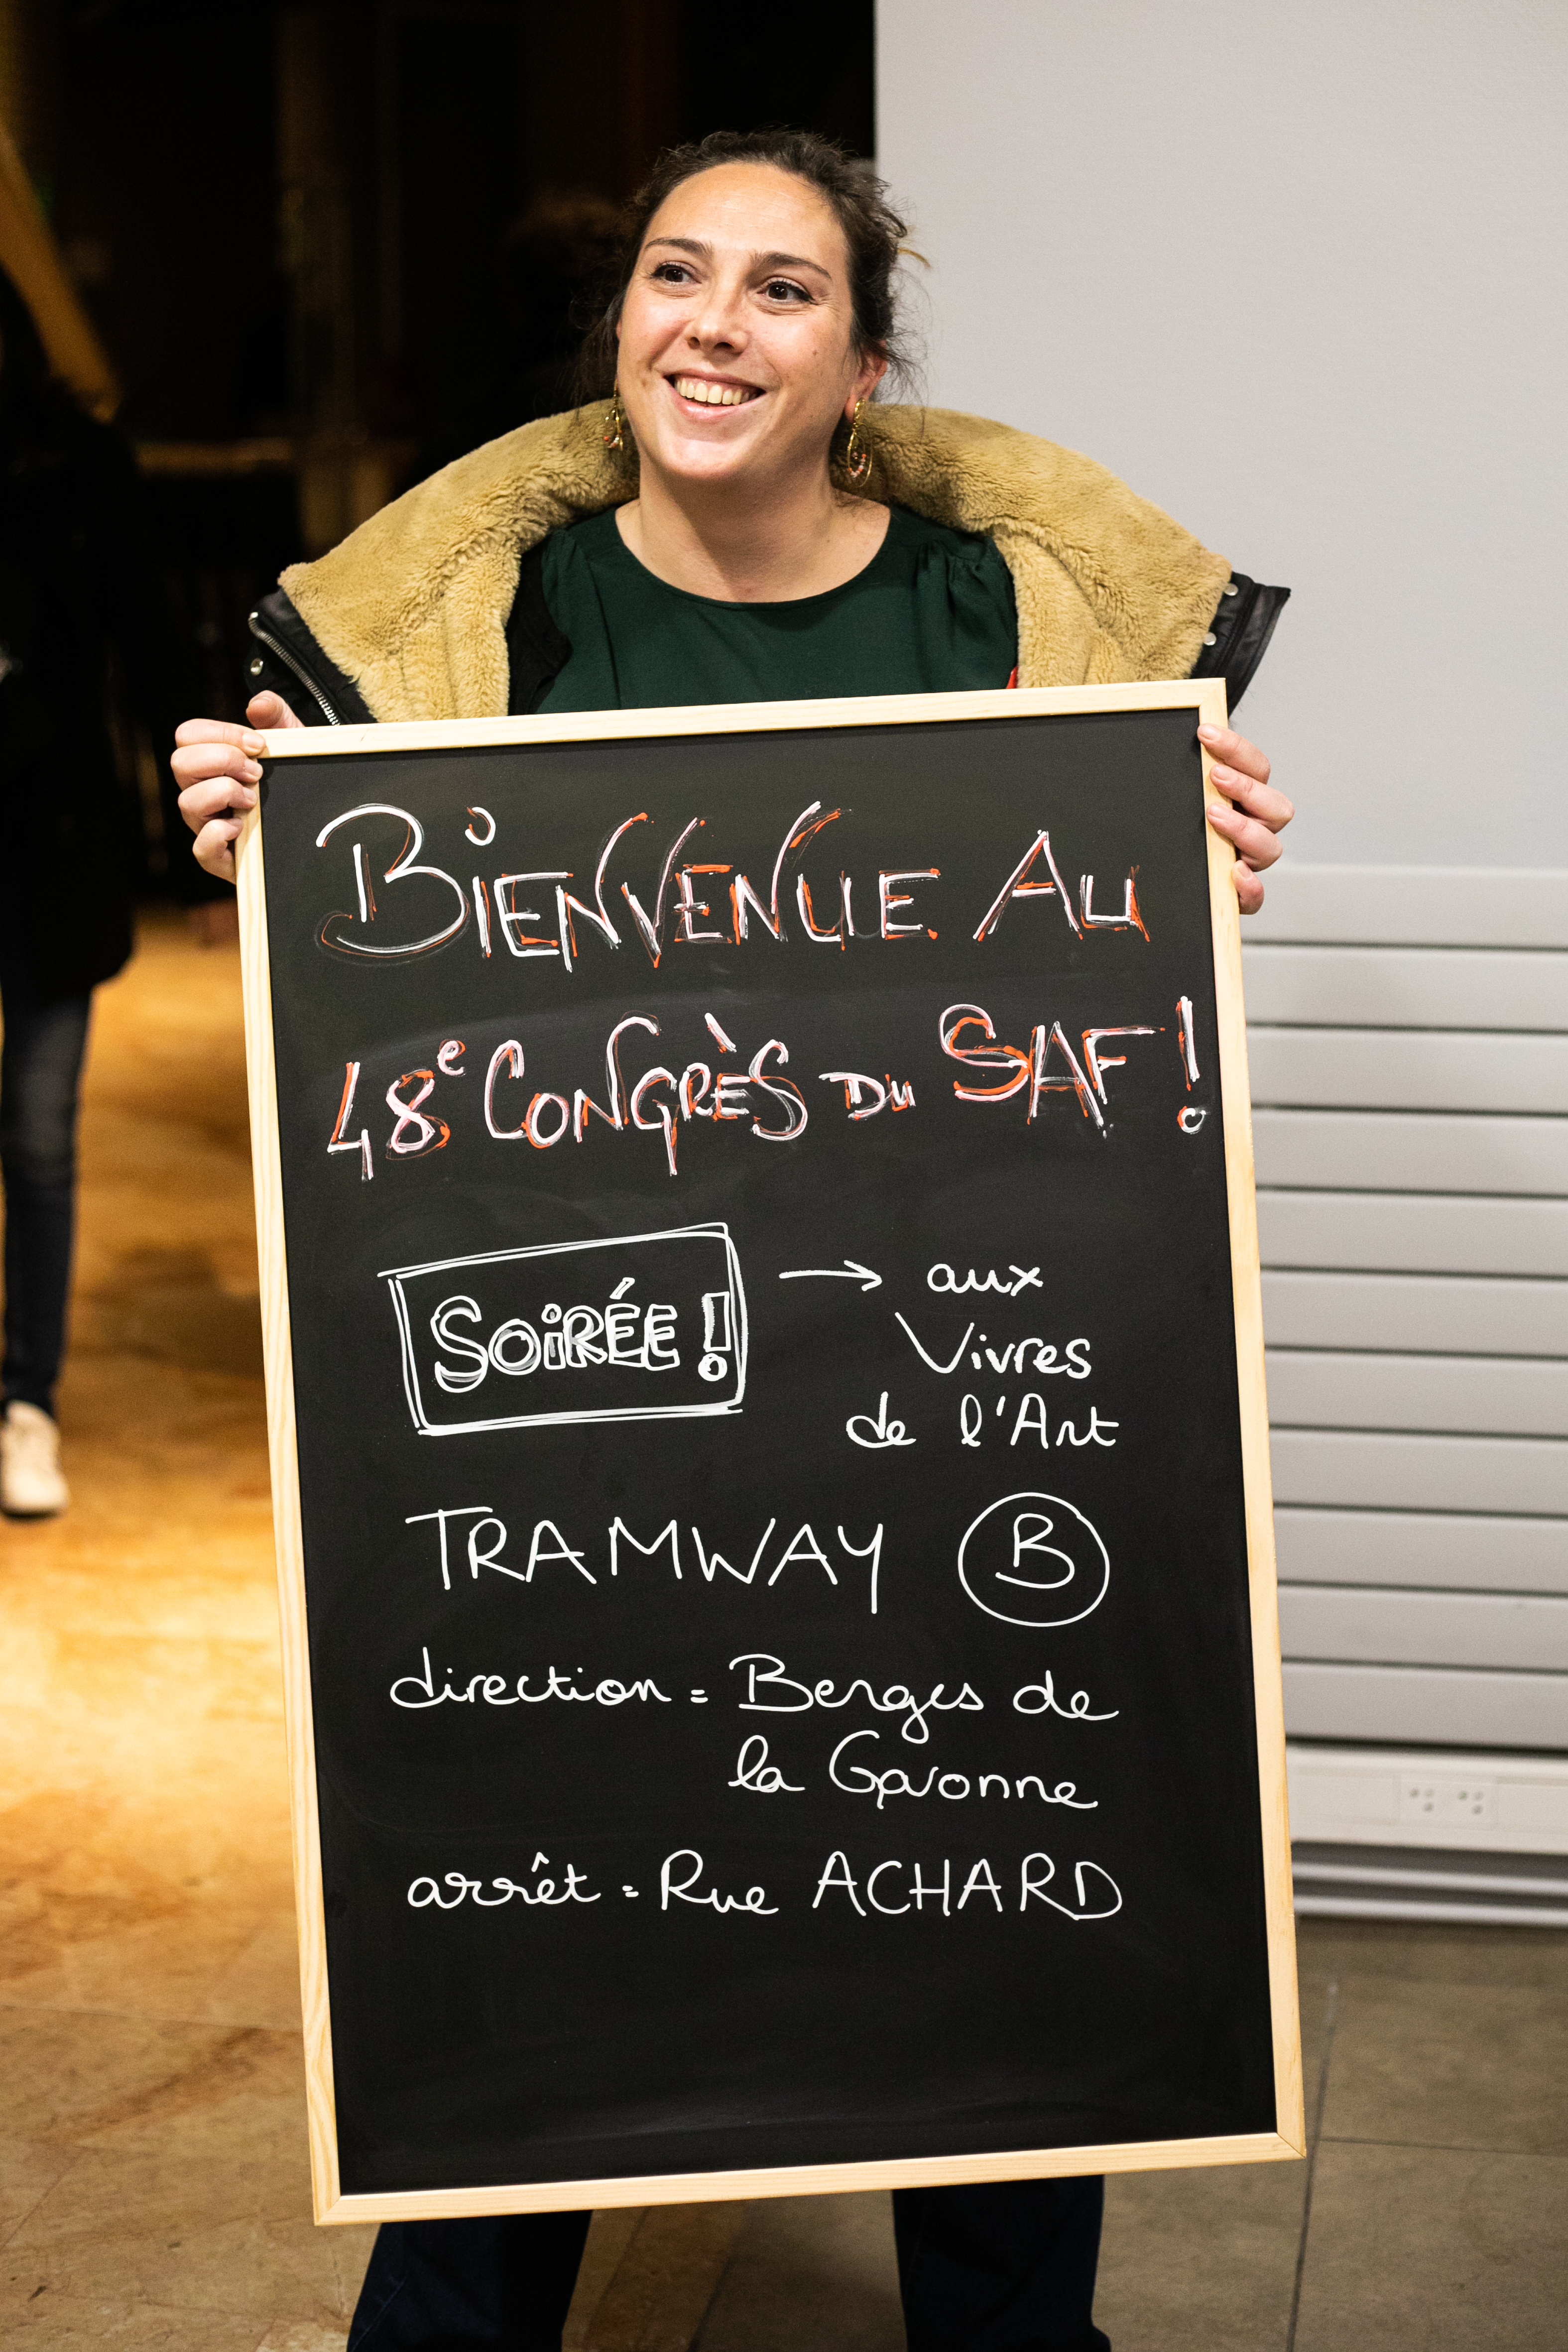 BIENVENUE AU
48e CONGRÈS DU SAF !
SOIRÉE ! → aux
Vivres
de l'Art
TRAMWAY B
direction = Berges de
la Garonne
arrêt = Rue ACHARD